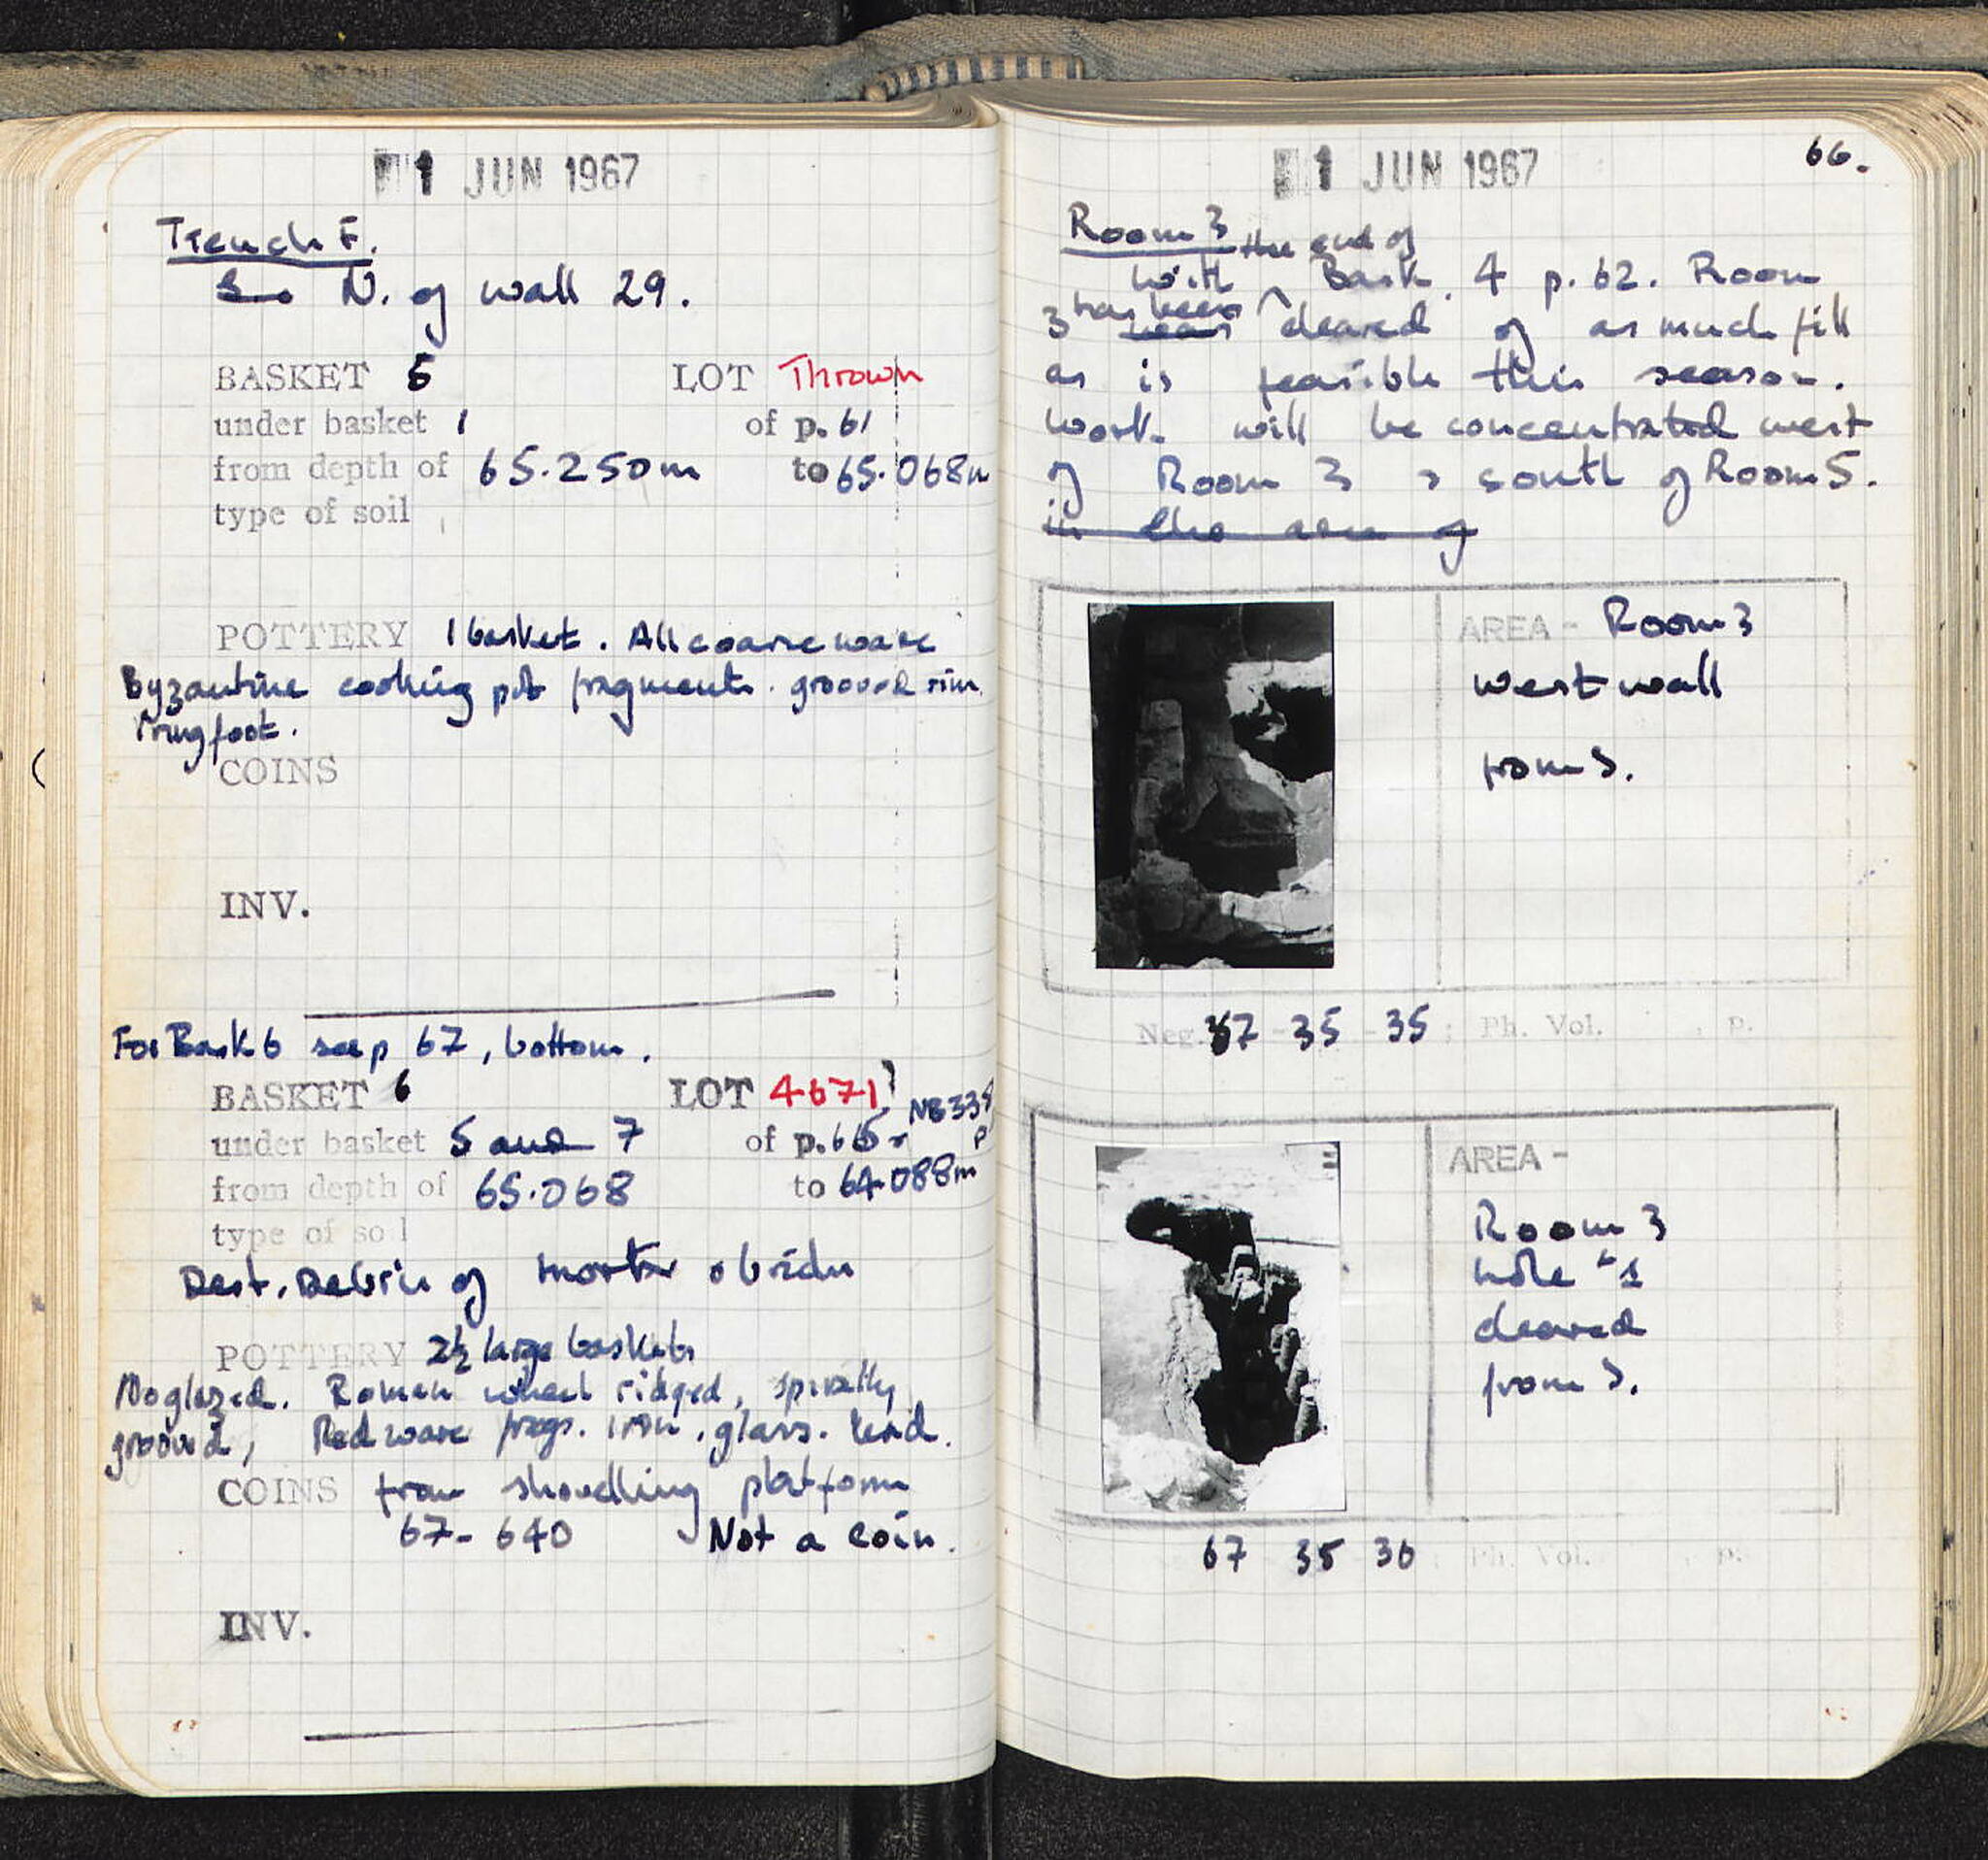 1 JUN 1967
Trench F.
N. of wall 29.
BASKET 5 LOT Thrown
under basket 1 of p. 61
from depth of 65.250m to 65.068m
type of soil
POTTERY 1 basket. All coarse ware
Byzantine cooking pot fragments. grooved rim.
ringfoot.
COINS
INV.
For Bask 6 see p 67, bottom.
BASKET 6 LOT 4671
under basket 5 and 7 of p. 65 NB 338 p
from depth of 65.068 to 64.088m
type of soil
Dest. Debris of mortar
POTTERY 2½ large baskets
No glazed. Roman wheel ridged, spirally
grooved, Red ware frags. iron, glass. lead.
COINS from shovelling platform
67-640 Not a coin.
INV.
1 JUN 1967
66.
Room 3
the end of
With Bask. 4 p. 62. Room
3 has been cleared of as much fill
as is feasible this season.
Work will be concentrated west
of Room 3 & south of Room 5.
in the area of
AREA - Room 3
west wall
from S.
Neg. 67-35-35; Ph. Vol. , p.
AREA -
Room 3
hole
cleared
from S.
67 35 36 ; Ph. Vol. , p.